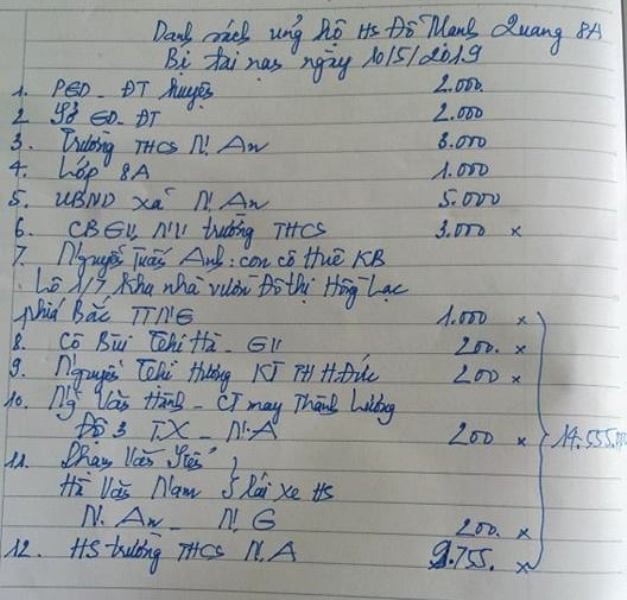 Danh sách ủng hộ HS Đỗ Mạnh Quang 8A
Bị tai nạn ngày 10/5/2019
1. PGD - ĐT huyện 2.000.
2 Sở GD - ĐT 2.000
3. Trường THCS N. An 3.000
4. Lớp 8A 1.000
5. UBND xã N. An 5.000
6. CBGV, NV trường THCS 3.000 x
7. Nguyễn Tuấn Anh: con cô Huê KB
Lô 1/7 Khu nhà vườn Đô thị Hồng Lạc
phía Bắc TTNG 1.000 x
8. Cô Bùi Thị Hà - GV 200. x
9. Nguyễn Thị Hương KT TH H.Đức 200 x
10. Ng Văn Hành - CT may Thành Lương
Độ 3 T.X - N.A 200 x 14.555.000
11. Phạm Văn
Hà Văn Nam } lái xe HS
N. An - N. G 200. x
12. HS trường THCS N.A 9.755. x